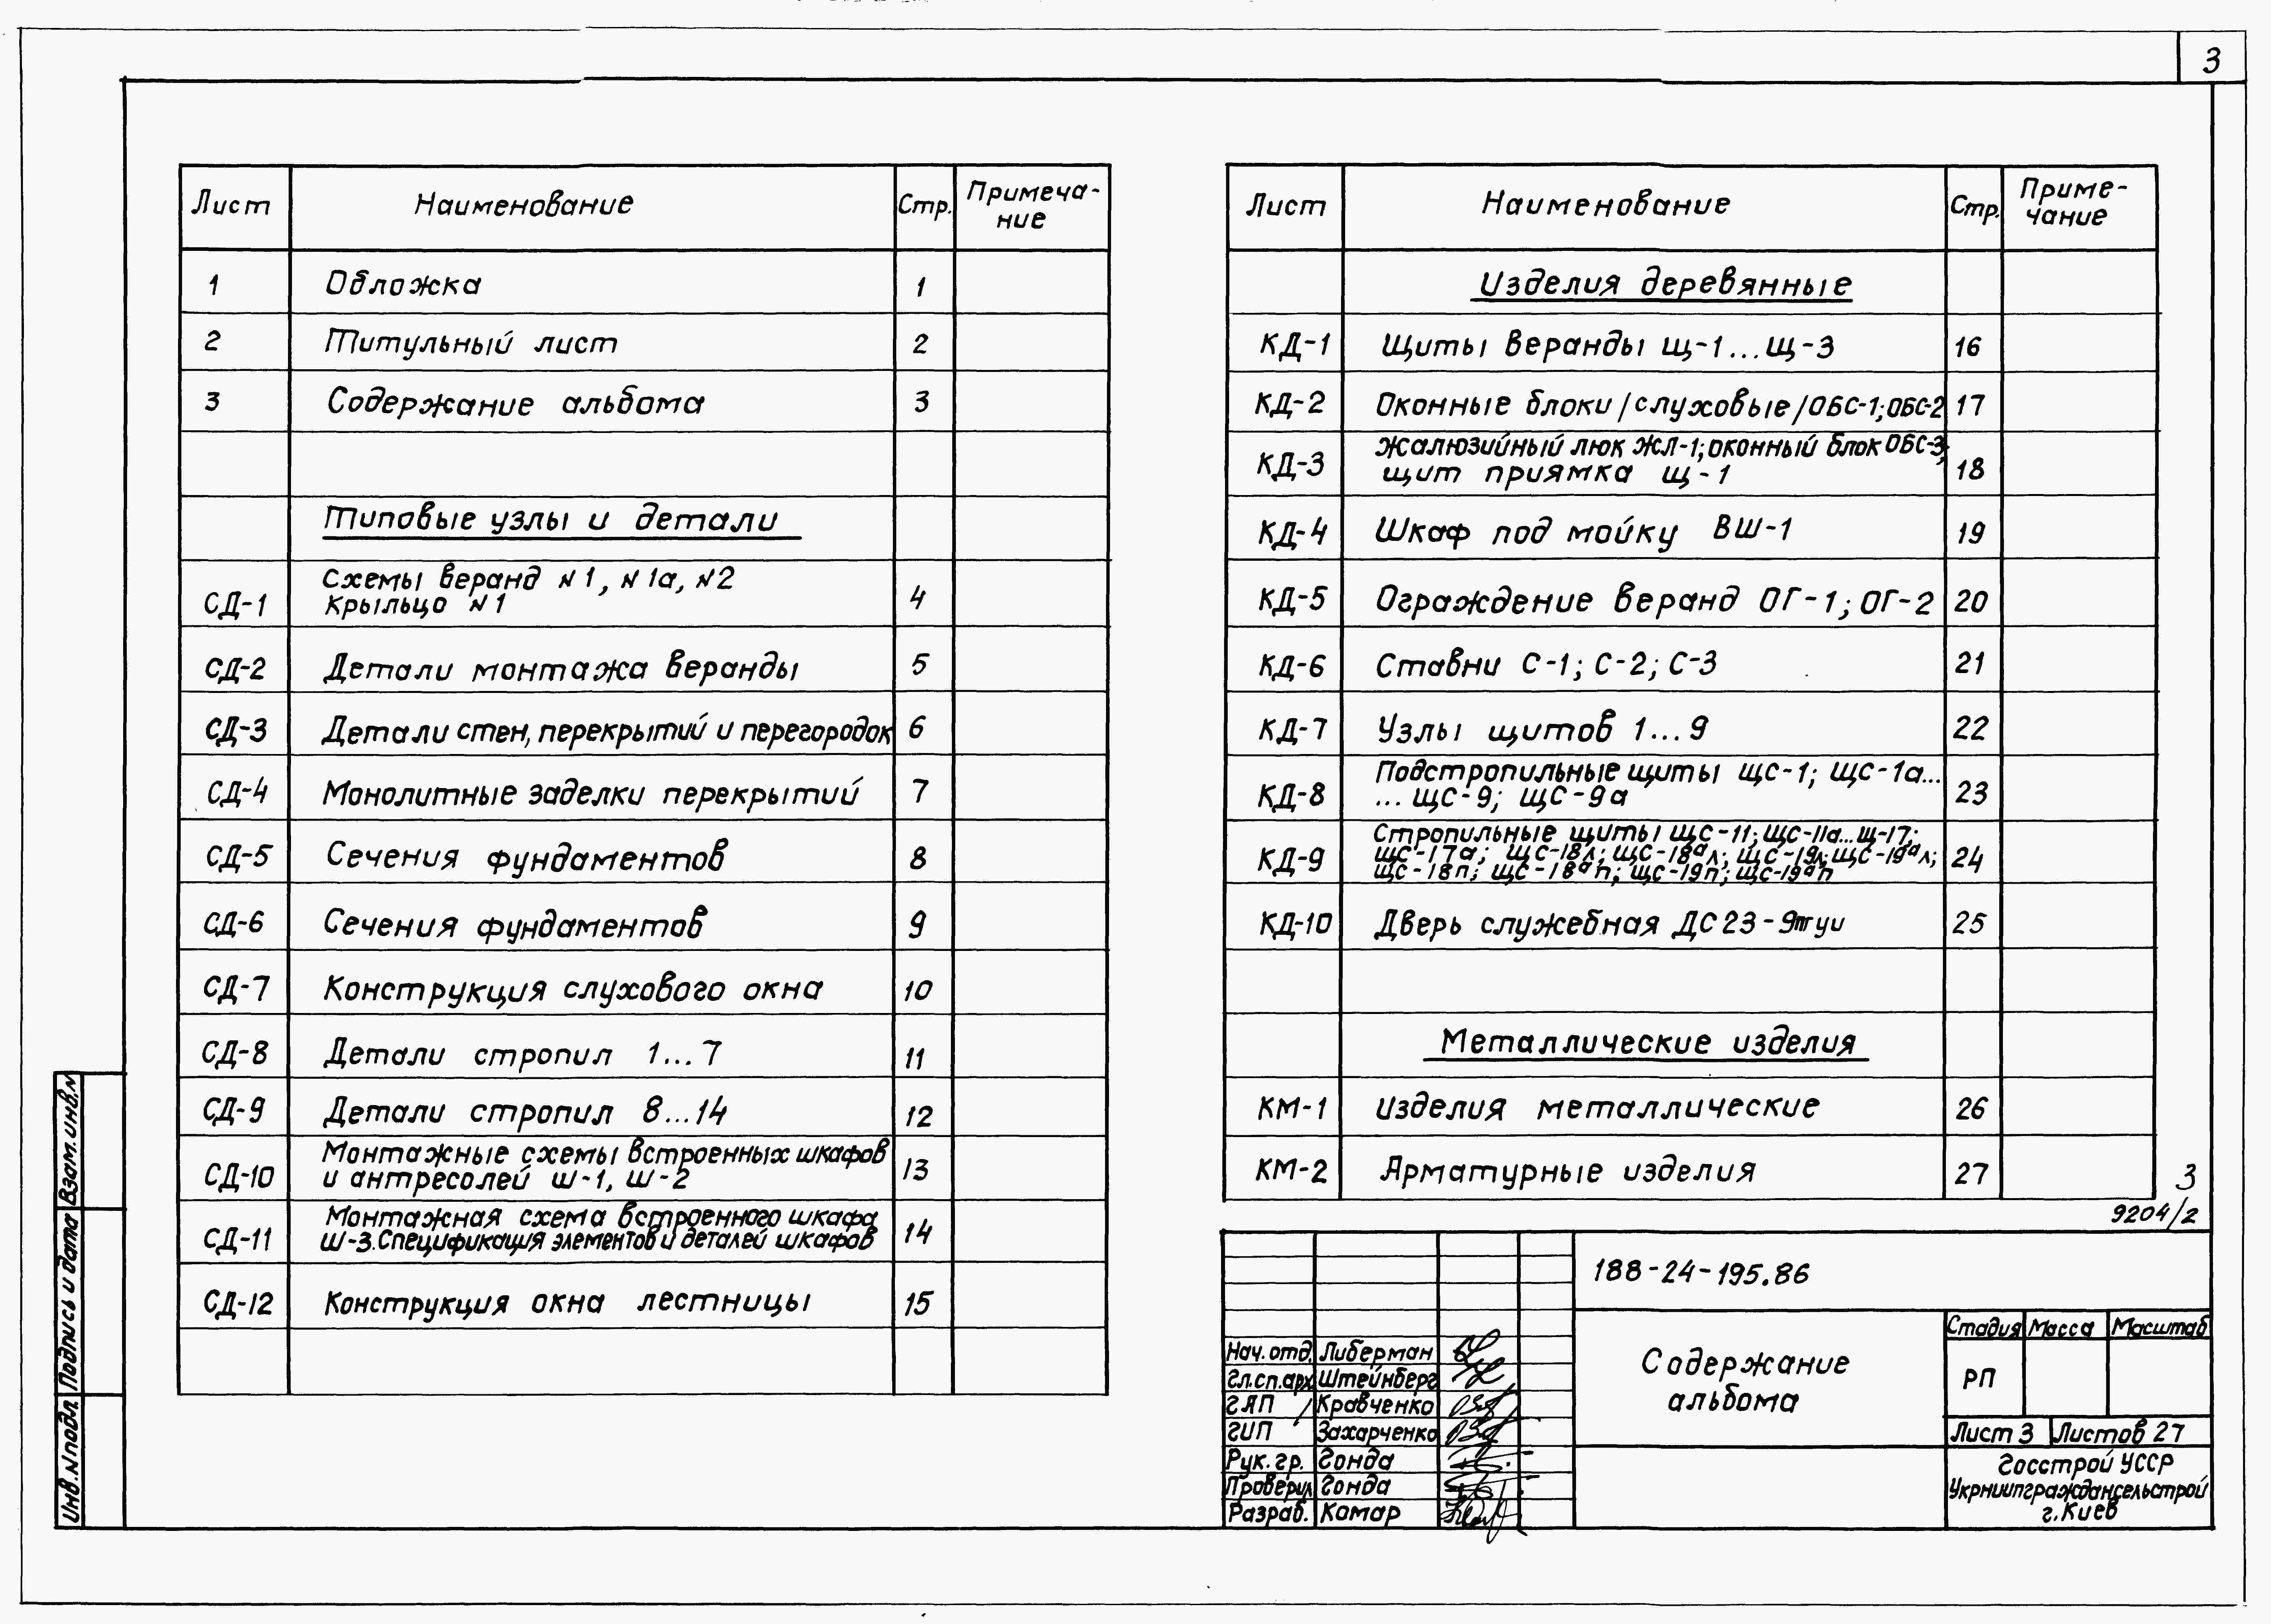 3
Лист Наименование Стр. Примеча-
ние
1 Обложка 1
2 Титульный лист 2
3 Содержание альбома 3
Типовые узлы и детали
Схемы веранд N1, N1а, N2
СД-1 Крыльцо N1 4
СД-2 Детали монтажа веранды 5
СД-3 Детали стен, перекрытий и перегородок 6
СД-4 Монолитные заделки перекрытий 7
СД-5 Сечения фундаментов 8
СД-6 Сечения фундаментов 9
СД-7 Конструкция слухового окна 10
СД-8 Детали стропил 1...7 11
СД-9 Детали стропил 8...14 12
Монтажные схемы встроенных шкафов
СД-10 и антресолей Ш-1, Ш-2 13
Монтажная схема встроенного шкафа
СД-11 Ш-3. Спецификация элементов и деталей шкафов 14
СД-12 Конструкция окна лестницы 15
Лист Наименование Стр. Приме-
чание
Изделия деревянные
КД-1 Щиты веранды Щ-1...Щ-3 16
КД-2 Оконные блоки /слуховые/ ОБС-1; ОБС-2 17
Жалюзийный люк ЖЛ-1; оконный блок ОБС-3;
КД-3 щит приямка Щ-1 18
КД-4 Шкаф под мойку ВШ-1 19
КД-5 Ограждение веранд ОГ-1; ОГ-2 20
КД-6 Ставни С-1; С-2; С-3 21
КД-7 Узлы щитов 1...9 22
Подстропильные щиты ЩС-1; ЩС-1а...
КД-8 ...ЩС-9; ЩС-9а 23
Стропильные щиты ЩС-11; ЩС-11а...Щ-17;
КД-9 ЩС-17а; ЩС-18л; ЩС-18ал; ЩС-19л; ЩС-19ал; 24
ЩС-18п; ЩС-18ап; ЩС-19п; ЩС-19ап
КД-10 Дверь служебная ДС23-9тгуи 25
Металлические изделия
КМ-1 Изделия металлические 26
КМ-2 Арматурные изделия 27
3
9204/2
188-24-195.86
Содержание
альбома
Стадия Масса Масштаб
РП
Лист 3 Листов 27
Госстрой УССР
Укрниипграждансельстрой
г. Киев
Нач. отд. Либерман
Гл.сп.арх Штейнберг
ГАП Кравченко
ГИП Захарченко
Рук. гр. Гонда
Проверил Гонда
Разраб. Комар
Взам. инв. N
Подпись и дата
Инв. N подл.